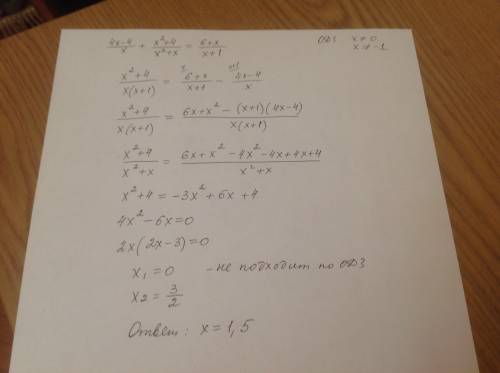 (4x-4)/x + (x²+4)/(x²+x) = (6+x)/(x+1)
ОДЗ x≠0
x≠-1
(x²+4)/(x(x+1)) = (6+x)/(x+1) - (4x-4)/x
(x²+4)/(x(x+1)) = (6x+x² - (x+1)(4x-4))/(x(x+1))
(x²+4)/(x²+x) = (6x+x²-4x²-4x+4x+4)/(x²+x)
x²+4 = -3x²+6x+4
4x²-6x=0
2x(2x-3)=0
x₁=0 - не подходит по ОДЗ
x₂ = 3/2
Ответ: x=1,5